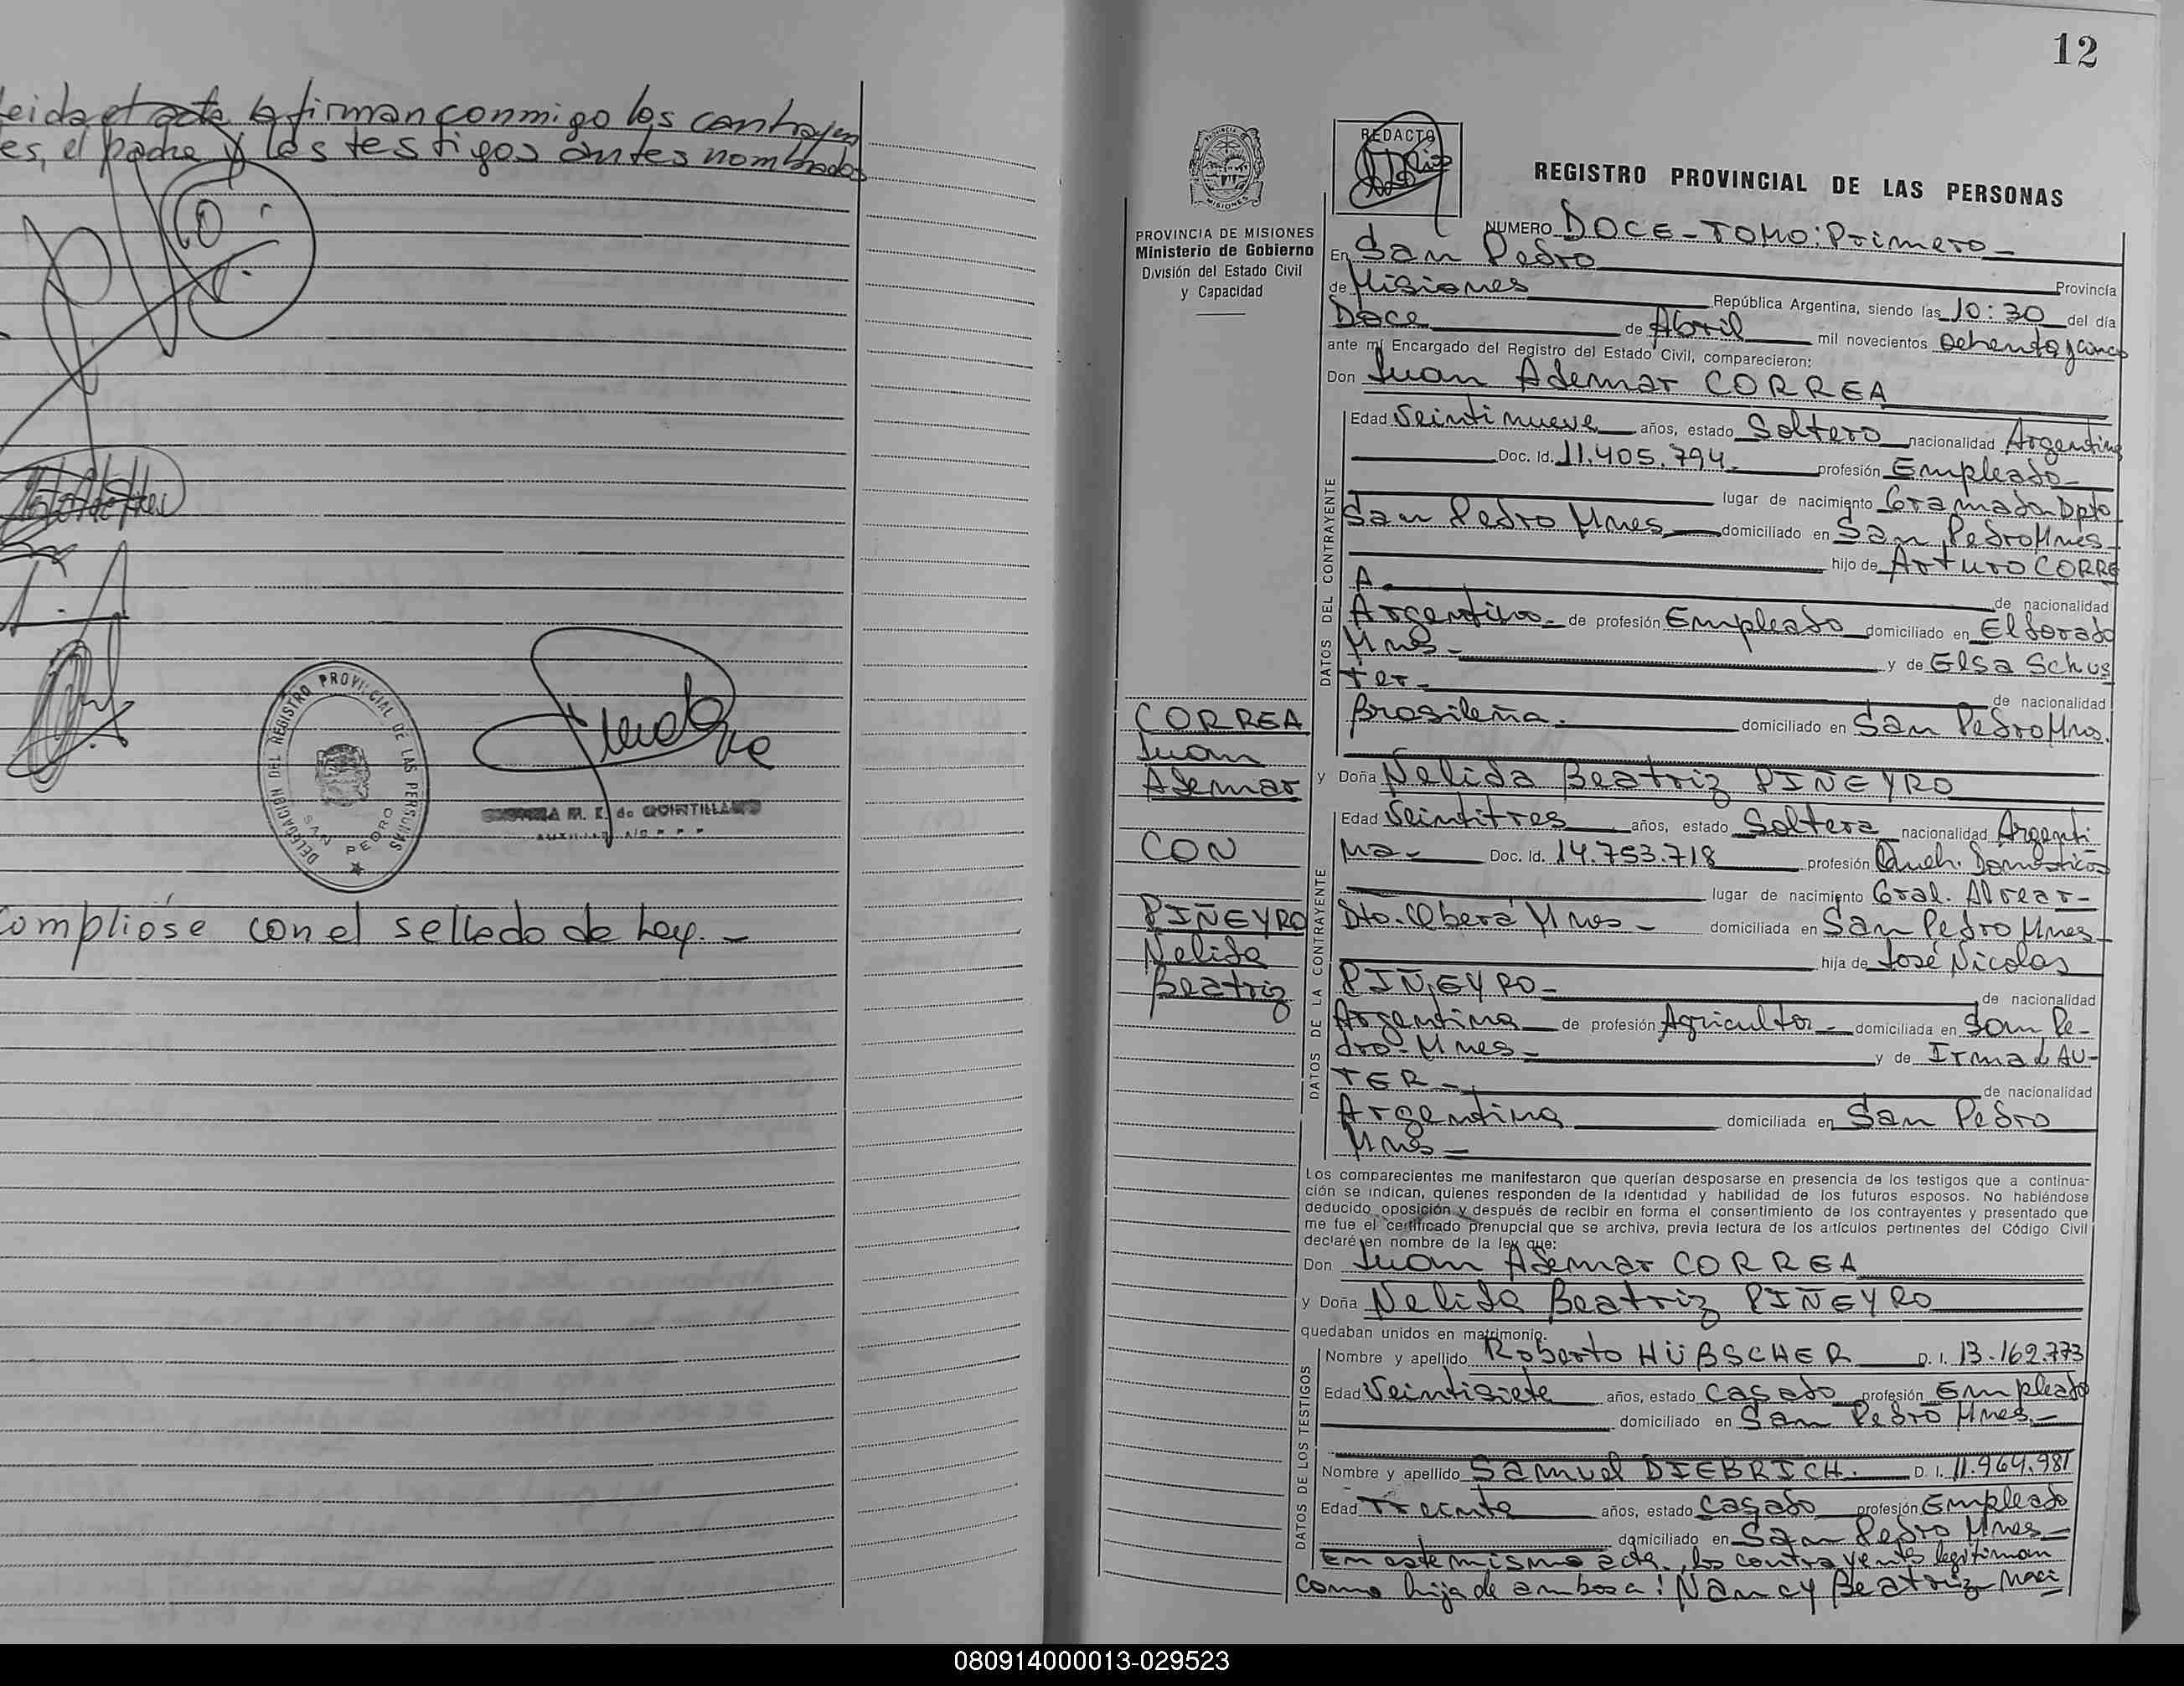 leida el acta la firman conmigo los contrayen
es, el padre y los testigos antes nombrados
DELEGACION DEL REGISTRO PROVINCIAL DE LAS PERSONAS
SAN PEDRO
M. E. de QUINTILLANO
Compliose con el sellado de Ley. -
12
PROVINCIA DE MISIONES
Ministerio de Gobierno
División del Estado Civil
y Capacidad
REDACTO
REGISTRO PROVINCIAL DE LAS PERSONAS
NUMERO DOCE - TOMO: Primero -
En San Pedro
Provincia
de Misiones República Argentina, siendo las 10:30 del día
Doce de Abril mil novecientos ochenta y cinco
ante mí Encargado del Registro del Estado Civil, comparecieron:
Don Juan Ademar CORREA
DATOS DEL CONTRAYENTE
Edad Veintinueve años, estado Soltero nacionalidad Argentina
Doc. Id. 11.405.794 profesión Empleado -
lugar de nacimiento Gramado Dpto
San Pedro Mnes domiciliado en San Pedro Mnes -
hijo de Arturo CORRE
A - de nacionalidad
Argentino - de profesión Empleado domiciliado en Eldorado
Mnes - y de Elsa Schus
ter - de nacionalidad
Brasileña. domiciliado en San Pedro Mnes.
CORREA
Juan
Ademar
CON
PIÑEYRO
Nelida
Beatriz
y Doña Nelida Beatriz PIÑEYRO
DATOS DE LA CONTRAYENTE
Edad Veintitres años, estado Soltera nacionalidad Argenti
na - Doc. Id. 14.753.718 profesión Queh. Domésticos
lugar de nacimiento Gral. Alvear -
Dto. Oberá Mnes - domiciliada en San Pedro Mnes -
hija de José Nicolas
PIÑEYRO - de nacionalidad
Argentina de profesión Agricultor - domiciliada en San Pe-
dro - Mnes - y de Irma LAU-
TER - de nacionalidad
Argentina domiciliada en San Pedro
Mnes -
Los comparecientes me manifestaron que querían desposarse en presencia de los testigos que a continua-
ción se indican, quienes responden de la identidad y habilidad de los futuros esposos. No habiéndose
deducido oposición y después de recibir en forma el consentimiento de los contrayentes y presentado que
me fue el certificado prenupcial que se archiva, previa lectura de los artículos pertinentes del Código Civil
declaré en nombre de la ley que:
Don Juan Ademar CORREA
y Doña Nelida Beatriz PIÑEYRO
quedaban unidos en matrimonio.
DATOS DE LOS TESTIGOS
Nombre y apellido Roberto HÜBSCHER D. I. 13.162.773
Edad Veintisiete años, estado casado profesión Empleado
domiciliado en San Pedro Mnes. -
Nombre y apellido Samuel DIEBRICH. D. I. 11.969.981
Edad Treinta años, estado casado profesión Empleado
domiciliado en San Pedro Mnes -
En este mismo acta, los contrayentes legitiman
como hija de ambos a: Nancy Beatriz naci
080914000013-029523